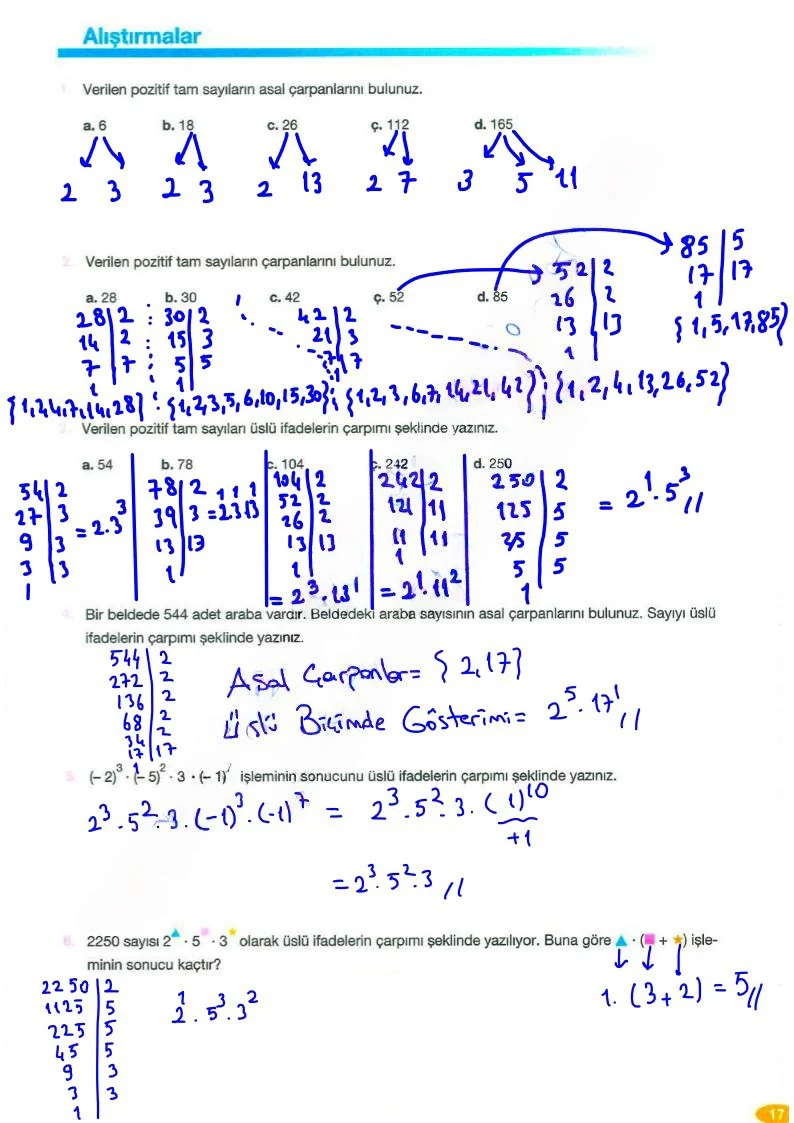 Alıştırmalar
1. Verilen pozitif tam sayıların asal çarpanlarını bulunuz.
a. 6 b. 18 c. 26 ç. 112 d. 165
2 3 2 3 2 13 2 7 3 5 11
2. Verilen pozitif tam sayıların çarpanlarını bulunuz.
a. 28 b. 30 c. 42 ç. 52 d. 85
28 | 2
14 | 2
7 | 7
1
30 | 2
15 | 3
5 | 5
1
42 | 2
21 | 3
7 | 7
1
52 | 2
26 | 2
13 | 13
1
85 | 5
17 | 17
1
{1,5,17,85}
{1,2,4,7,14,28} {1,2,3,5,6,10,15,30} {1,2,3,6,7,14,21,42} {1,2,4,13,26,52}
3. Verilen pozitif tam sayıları üslü ifadelerin çarpımı şeklinde yazınız.
a. 54 b. 78 c. 104 ç. 242 d. 250
54 | 2
27 | 3
9 | 3
3 | 3
1
= 2.3³
78 | 2
39 | 3
13 | 13
1
= 2¹3¹13¹
104 | 2
52 | 2
26 | 2
13 | 13
1
= 2³.13¹
242 | 2
121 | 11
11 | 11
1
= 2¹.11²
250 | 2
125 | 5
25 | 5
5 | 5
1
= 2¹.5³//
4. Bir beldede 544 adet araba vardır. Beldedeki araba sayısının asal çarpanlarını bulunuz. Sayıyı üslü
ifadelerin çarpımı şeklinde yazınız.
544 | 2
272 | 2
136 | 2
68 | 2
34 | 2
17 | 17
Asal Çarpanlar= {2,17}
Üslü Biçimde Gösterimi= 2⁵.17¹//
5. (– 2)³ · (– 5)² · 3 · (– 1)⁷ işleminin sonucunu üslü ifadelerin çarpımı şeklinde yazınız.
2³.5².3.(-1)³.(-1)⁷ = 2³.5².3.(-1)¹⁰
+1
= 2³.5².3 //
6. 2250 sayısı 2▲ · 5■ · 3★ olarak üslü ifadelerin çarpımı şeklinde yazılıyor. Buna göre ▲ · (■ + ★) işle-
minin sonucu kaçtır?
2250 | 2
1125 | 5
225 | 5
45 | 5
9 | 3
3 | 3
1
2¹.5³.3²
1.(3+2) = 5//
17